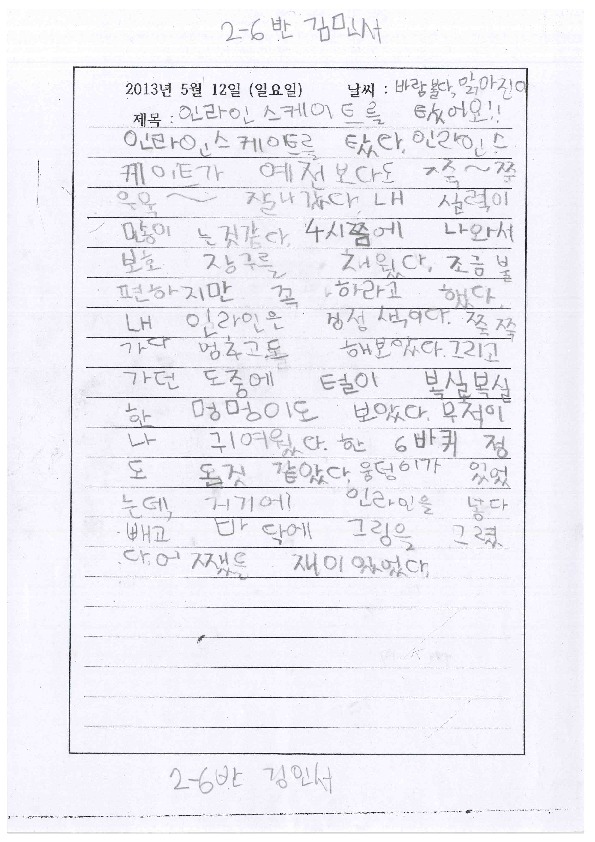 2-6반 김민서
2013년 5월 12일 (일요일) 날씨 : 바람불다, 맑아진다
제목 : 인라인 스케이트를 탔어요!!
인라인스케이트를 탔다. 인라인 스
케이트가 예전보다도 쭉~쭉
우욱~ 잘나갔다. 내 실력이
많이 는것같다. 4시쯤에 나와서
보호 장구를 채웠다. 조금 불
편하지만 꼭 하라고 했다.
내 인라인은 검정색이다. 쭉쭉
가다 멈추고도 해보았다. 그리고
가던 도중에 털이 복실복실
한 멍멍이도 보았다. 무척이
나 귀여웠다. 한 6바퀴 정
도 돈것 같았다. 웅덩이가 있었
는데, 거기에 인라인을 넣다
빼고 바닥에 그림을 그렸
다. 어쨌든 재미있었다.
2-6반 김민서